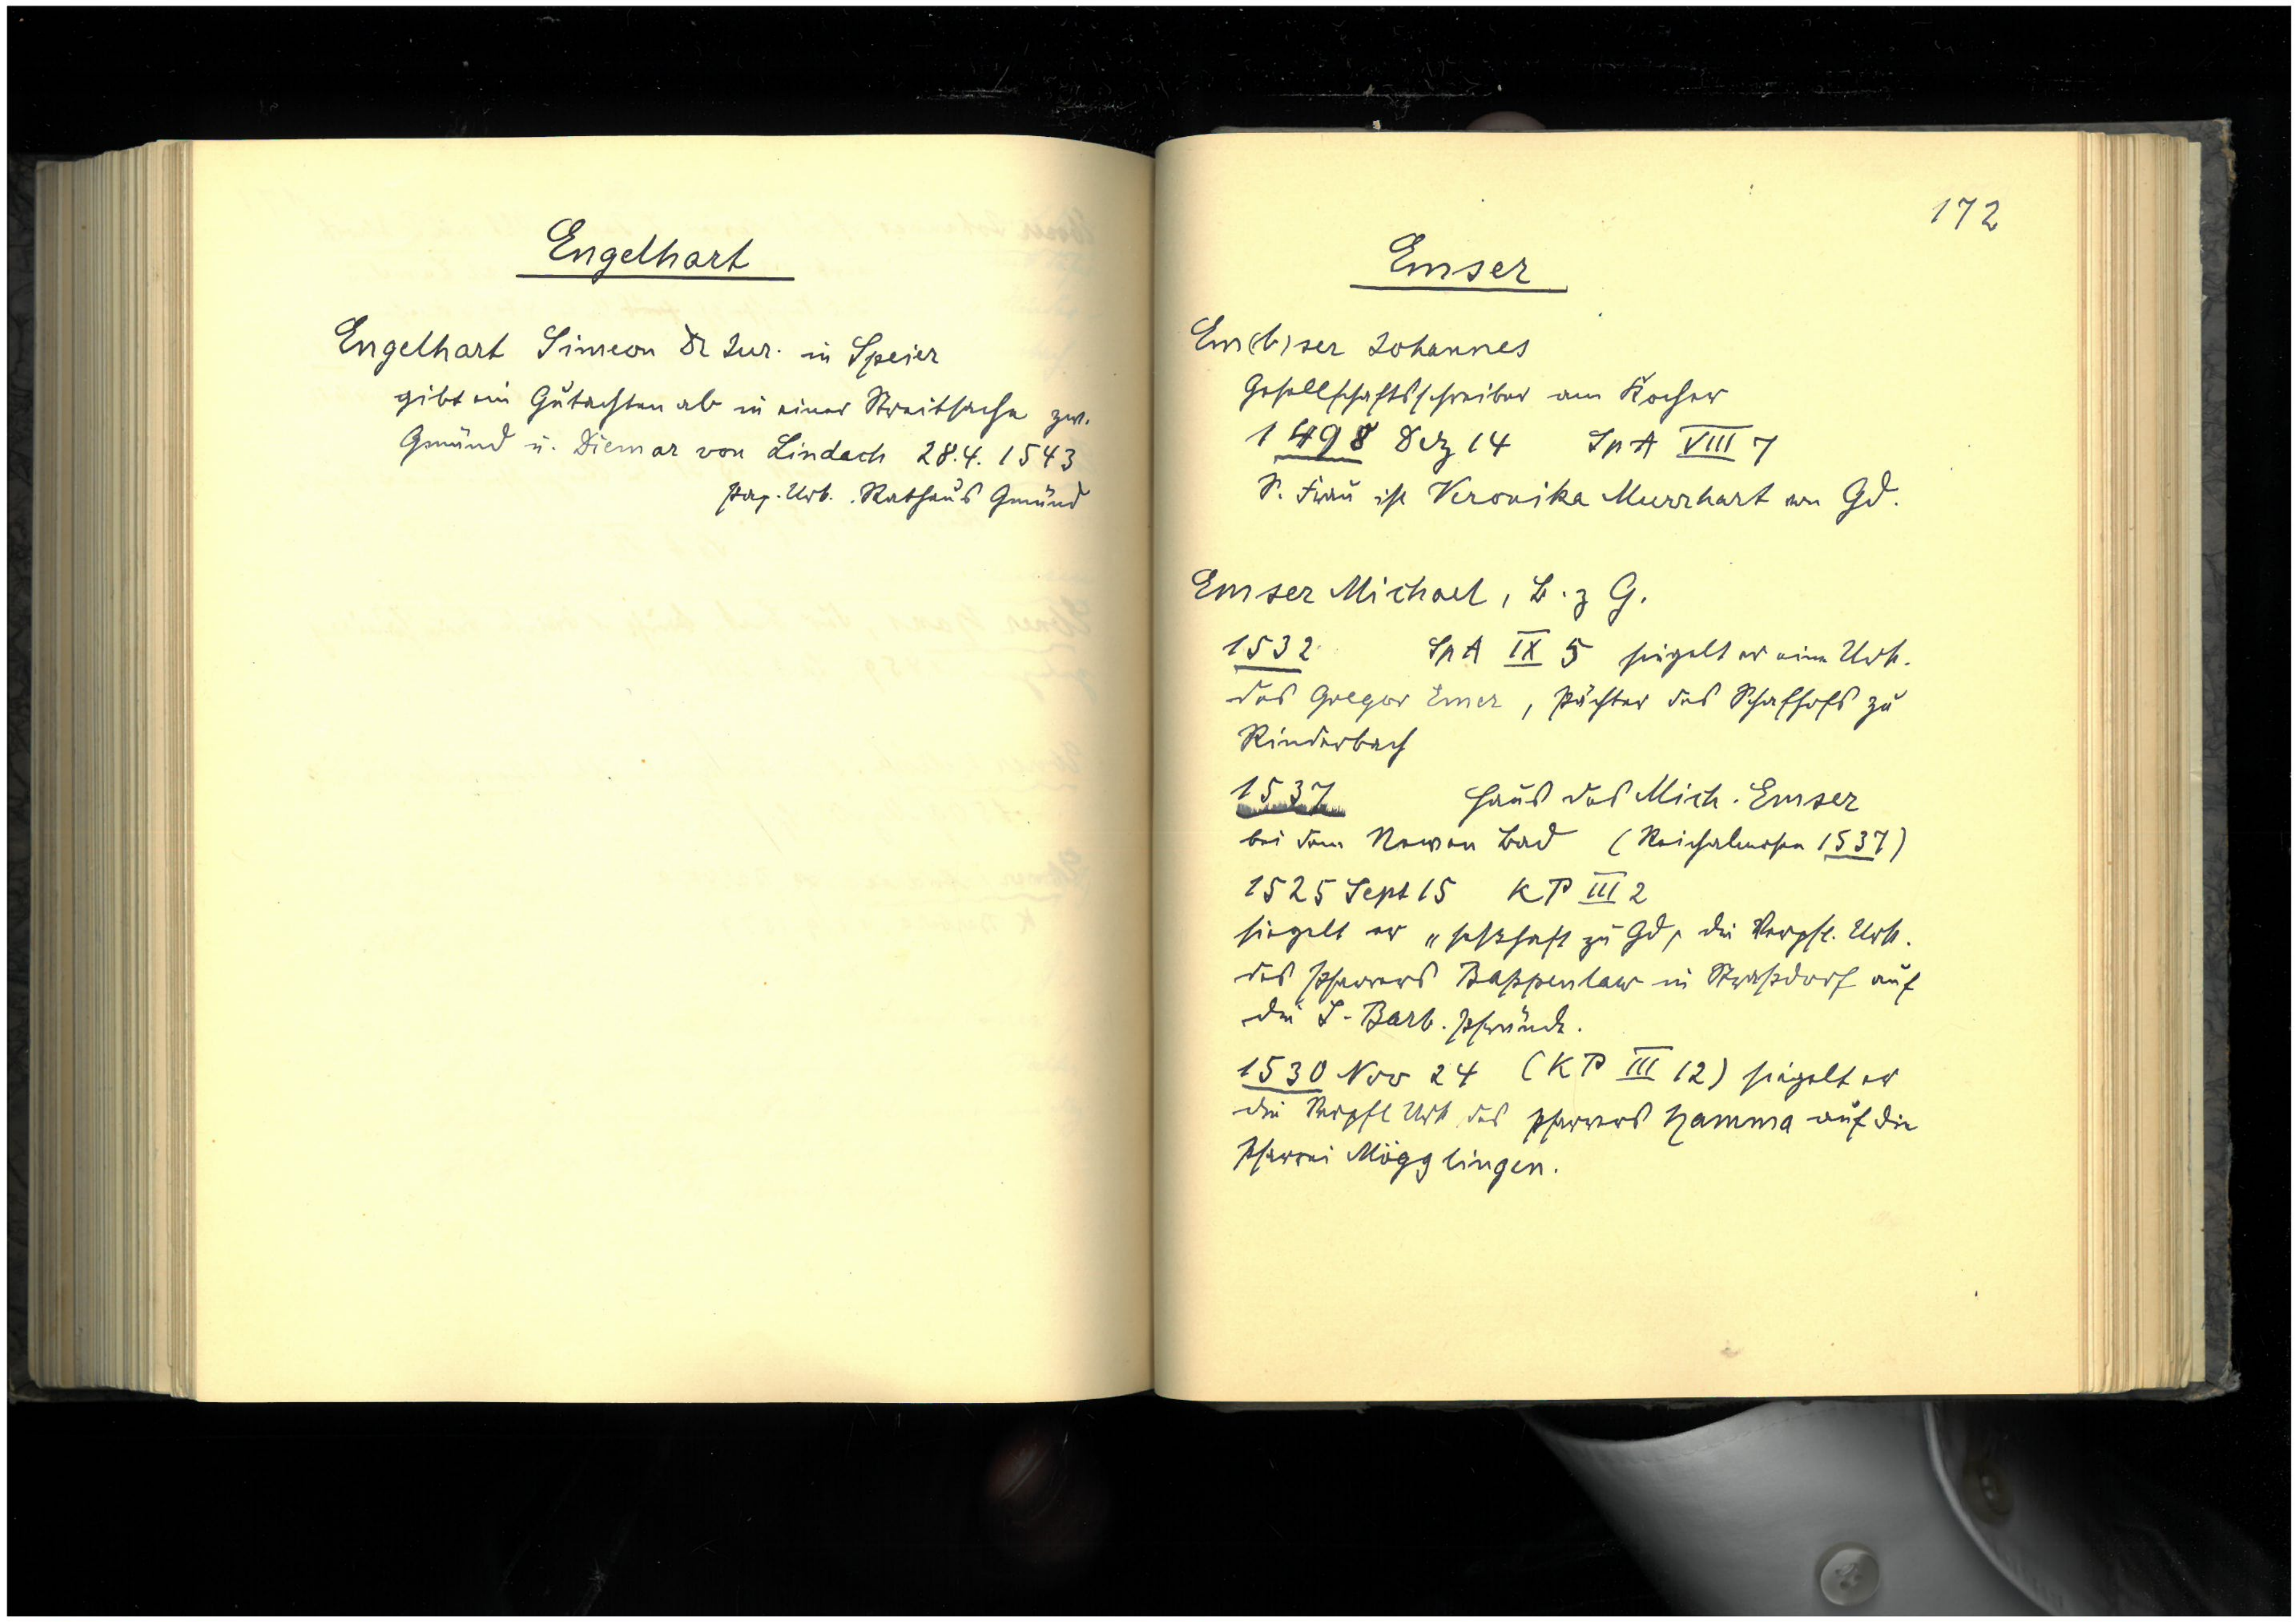 Engelhart
Engelhart Simeon Dr Jur. in Speier
gibt ein Gutachten ab in einer Streitsache zw.
Gmünd u. Diemar von Lindach 28.4.1543
Pap. Urk. Rathaus Gmünd
172
Emser
Em(b)ser Johannes
Gesellschaftsschreiber am Kocher
1498 Dez 14 SpA VIII 7
S. Frau ist Veronika Murrhart von Gd.
Emser Michael, B. z G.
1532 SpA IX 5 siegelt er eine Urk.
des Gregor Emer, Pächter des Schafhofs zu
Rinderbach
1537 Haus des Mich. Emser
bei dem Newen Bad (Reichalmosen 1537)
1525 Sept 15 KP III 2
siegelt er „seßhaft zu Gd" die Verpfl. Urk.
des Pfarrers Bappenlaw in Straßdorf auf
die S. Barb. Pfründe.
1530 Nov 24 (KP III 12) siegelt er
die Verpfl Urk des Pfarrers Hamma auf die
Pfarrei Mögglingen.